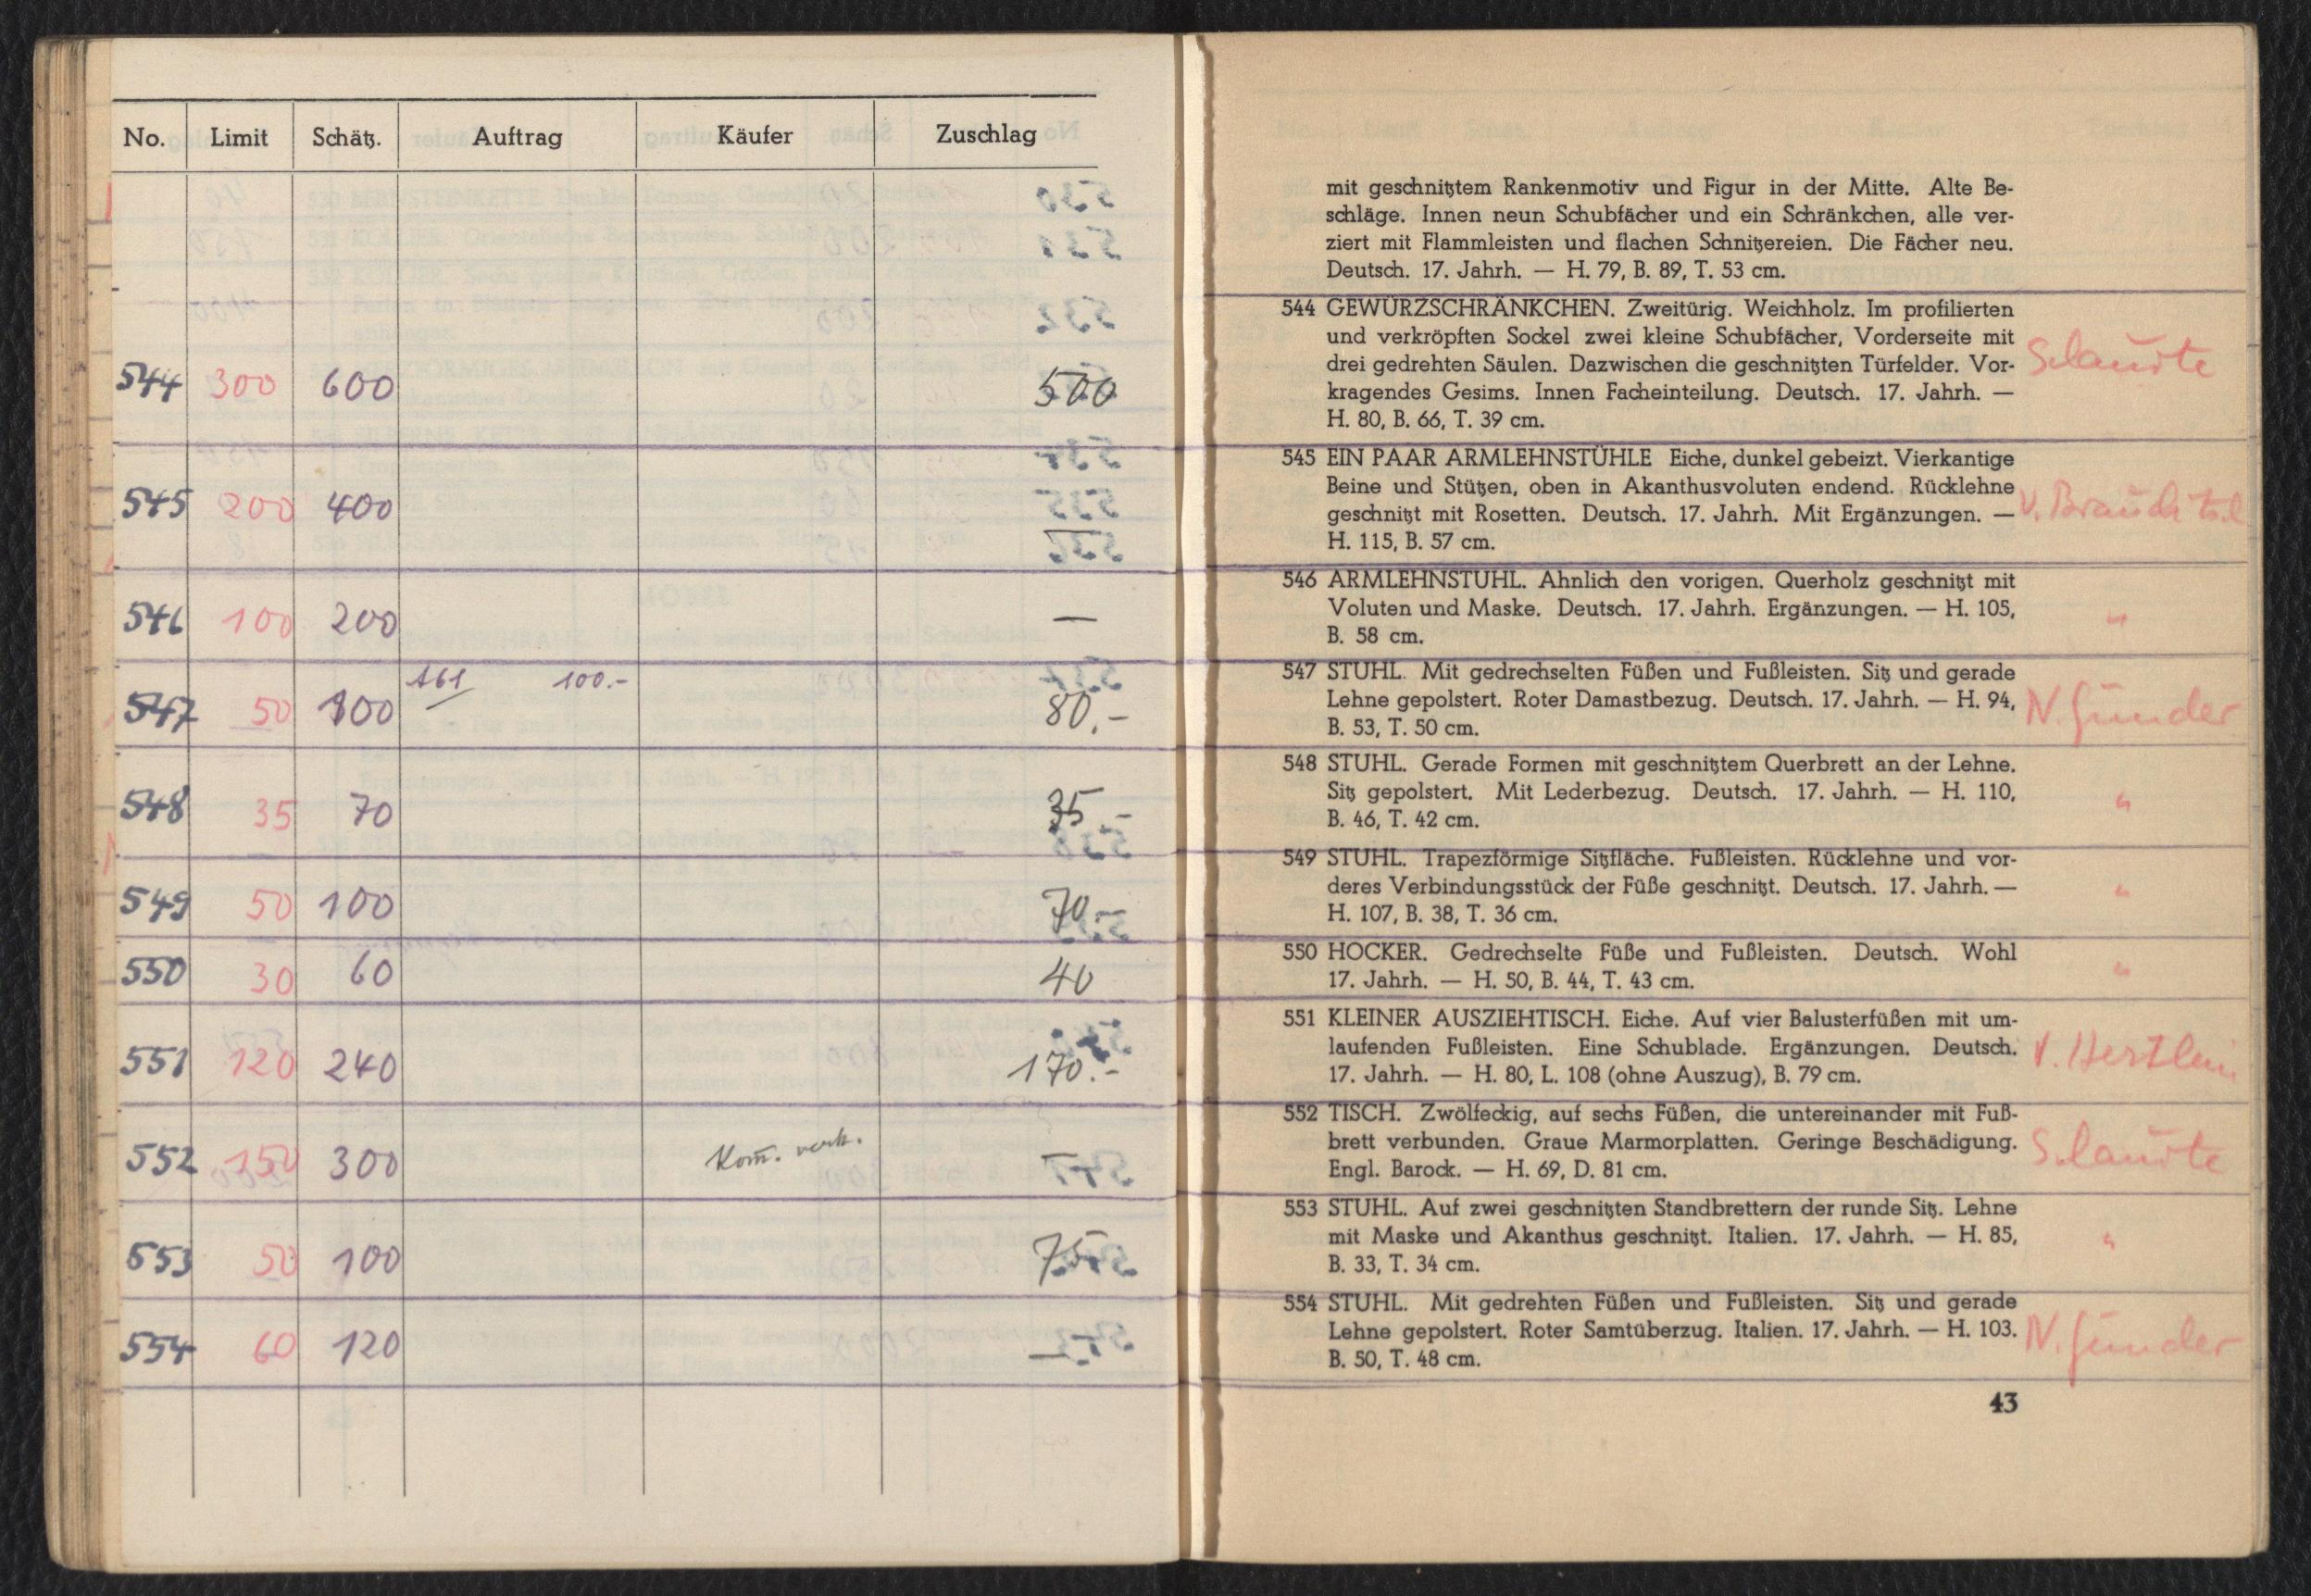 No. Limit Schätz. Auftrag Käufer Zuschlag
544 300 600 500
545 200 400
546 100 200 —
547 50 100 161 100.- 80.-
548 35 70 35.-
549 50 100 70.-
550 30 60 40
551 120 240 170.-
552 150 300 Kom. verk. —
553 50 100 75.-
554 60 120 —
mit geschnitztem Rankenmotiv und Figur in der Mitte. Alte Be-
schläge. Innen neun Schubfächer und ein Schränkchen, alle ver-
ziert mit Flammleisten und flachen Schnitzereien. Die Fächer neu.
Deutsch. 17. Jahrh. — H. 79, B. 89, T. 53 cm.
544 GEWÜRZSCHRÄNKCHEN. Zweitürig. Weichholz. Im profilierten
und verkröpften Sockel zwei kleine Schubfächer, Vorderseite mit
drei gedrehten Säulen. Dazwischen die geschnitzten Türfelder. Vor-
kragendes Gesims. Innen Facheinteilung. Deutsch. 17. Jahrh. —
H. 80, B. 66, T. 39 cm.
545 EIN PAAR ARMLEHNSTÜHLE Eiche, dunkel gebeizt. Vierkantige
Beine und Stützen, oben in Akanthusvoluten endend. Rücklehne
geschnitzt mit Rosetten. Deutsch. 17. Jahrh. Mit Ergänzungen. —
H. 115, B. 57 cm.
546 ARMLEHNSTUHL. Ähnlich den vorigen. Querholz geschnitzt mit
Voluten und Maske. Deutsch. 17. Jahrh. Ergänzungen. — H. 105,
B. 58 cm. "
547 STUHL. Mit gedrechselten Füßen und Fußleisten. Sitz und gerade
Lehne gepolstert. Roter Damastbezug. Deutsch. 17. Jahrh. — H. 94, N. Günder
B. 53, T. 50 cm.
548 STUHL. Gerade Formen mit geschnitztem Querbrett an der Lehne.
Sitz gepolstert. Mit Lederbezug. Deutsch. 17. Jahrh. — H. 110, "
B. 46, T. 42 cm.
549 STUHL. Trapezförmige Sitzfläche. Fußleisten. Rücklehne und vor-
deres Verbindungsstück der Füße geschnitzt. Deutsch. 17. Jahrh. — "
H. 107, B. 38, T. 36 cm.
550 HOCKER. Gedrechselte Füße und Fußleisten. Deutsch. Wohl
17. Jahrh. — H. 50, B. 44, T. 43 cm. "
551 KLEINER AUSZIEHTISCH. Eiche. Auf vier Balusterfüßen mit um-
laufenden Fußleisten. Eine Schublade. Ergänzungen. Deutsch. V. Hertlein
17. Jahrh. — H. 80, L. 108 (ohne Auszug), B. 79 cm.
552 TISCH. Zwölfeckig, auf sechs Füßen, die untereinander mit Fuß-
brett verbunden. Graue Marmorplatten. Geringe Beschädigung.
Engl. Barock. — H. 69, D. 81 cm.
553 STUHL. Auf zwei geschnitzten Standbrettern der runde Sitz. Lehne
mit Maske und Akanthus geschnitzt. Italien. 17. Jahrh. — H. 85, "
B. 33, T. 34 cm.
554 STUHL. Mit gedrehten Füßen und Fußleisten. Sitz und gerade
Lehne gepolstert. Roter Samtüberzug. Italien. 17. Jahrh. — H. 103. N. Günder
B. 50, T. 48 cm.
43